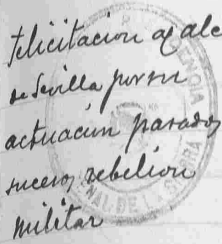 felicitacion a alc
de Sevilla por su
actuación pasados
sucesos rebelion
militar